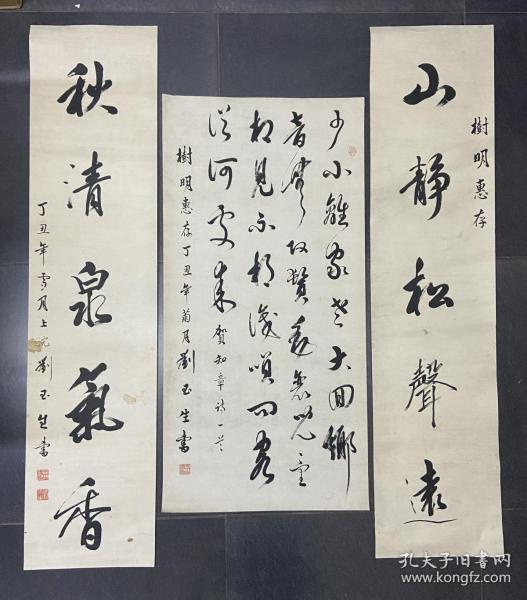 山靜松聲遠
樹明惠存
少小離家老大回鄉
音改鬢毛衰兒童
相見不相識笑問客
從何處來賀知章詩一首
樹明惠存丁丑年月劉玉生書
秋清泉氣香
丁丑年月上浣劉玉生書
孔夫子旧书网
www.kongfz.com